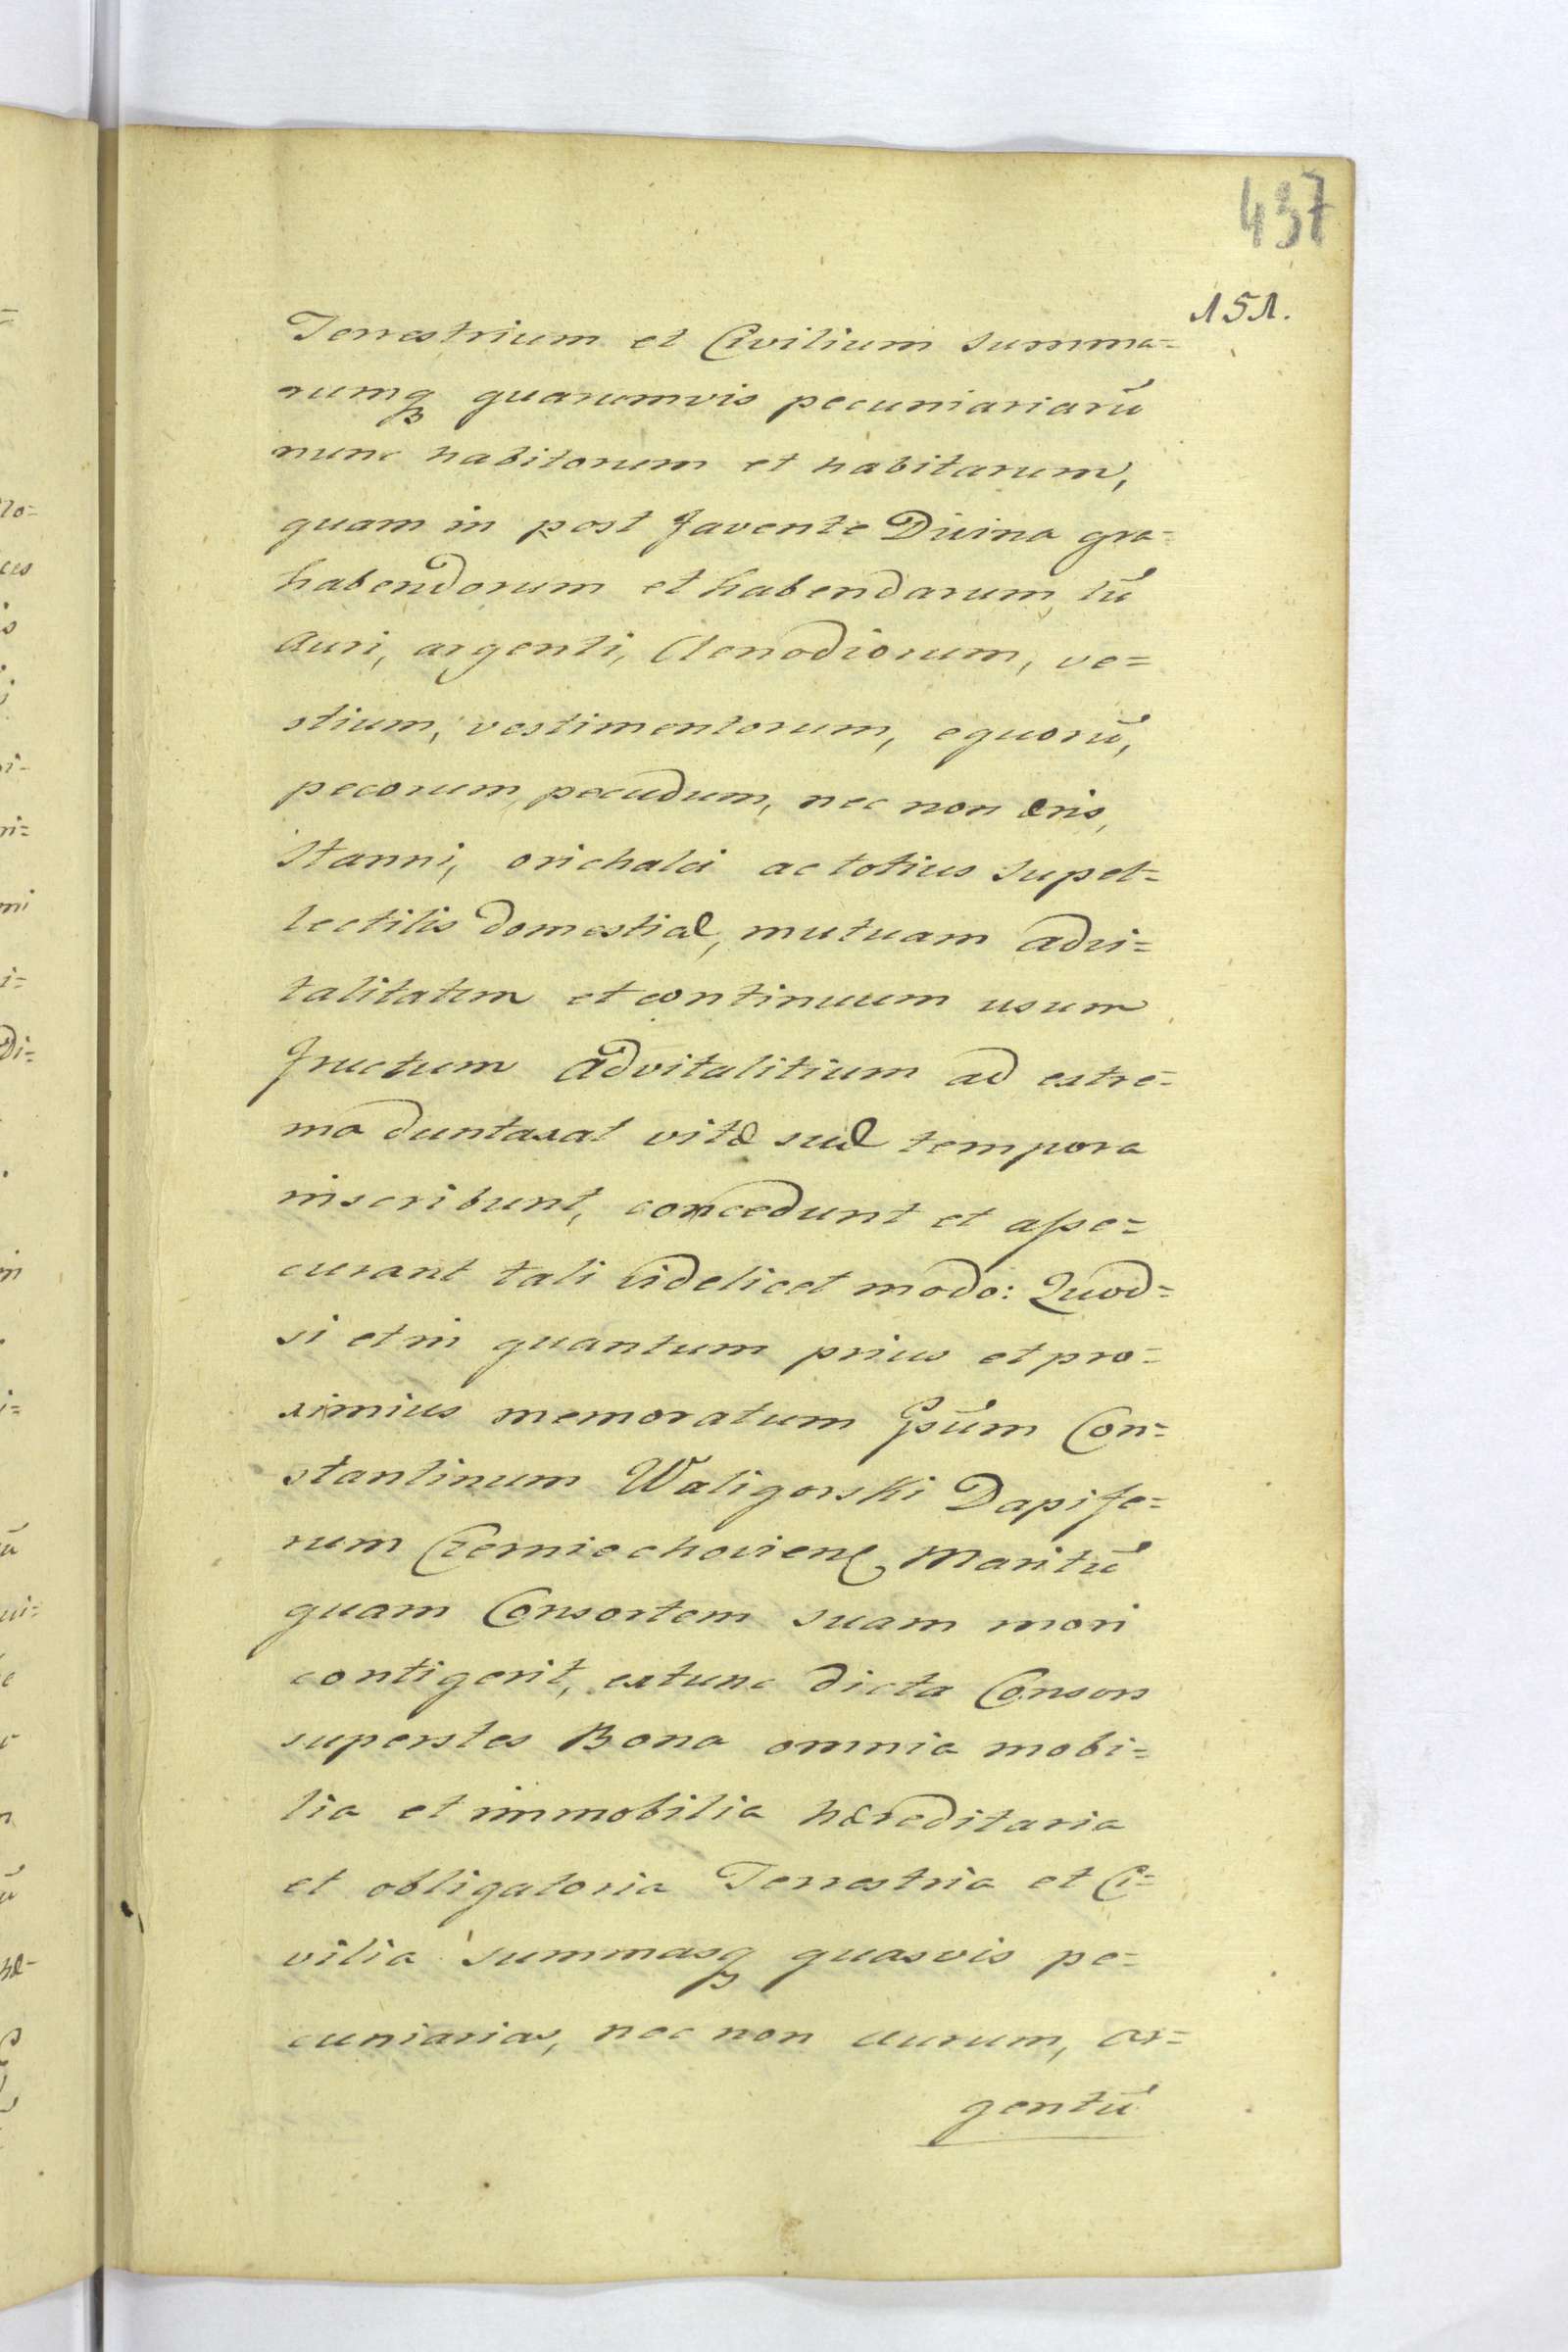 437
151.
Terrestrium et Civilium summa=
rumq₃ quarumvis pecuniariarū
nunc habitorum et habitarum,
quam in post favente Divina gra=
habendorum et habendarum, tū
Auri, argenti, Clenodiorum, ve=
stium, vestimentorum, equorū,
pecorum, pecudum, nec non æris,
Stanni, orichalci ac totius supel=
lectilis domesticæ, mutuam advi=
talitatem et continuum usum
fructum advitalitium ad extre=
ma duntaxat vitæ suæ tempora
inscribunt, concedunt et asse=
curant tali videlicet modo: Quod=
si et in quantum prius et pro=
ximius memoratum Gsūm Con=
stantinum Waligorski Dapife=
rum Czerniechoviens Maritū
quam Consortem suam mori
contigerit, extunc dicta Consors
superstes Bona omnia mobi=
lia et immobilia hæreditaria
et obligatoria Terrestria et Ci=
vilia summasq₃ quasvis pe=
cuniarias, nec non aurum, ar=
gentū